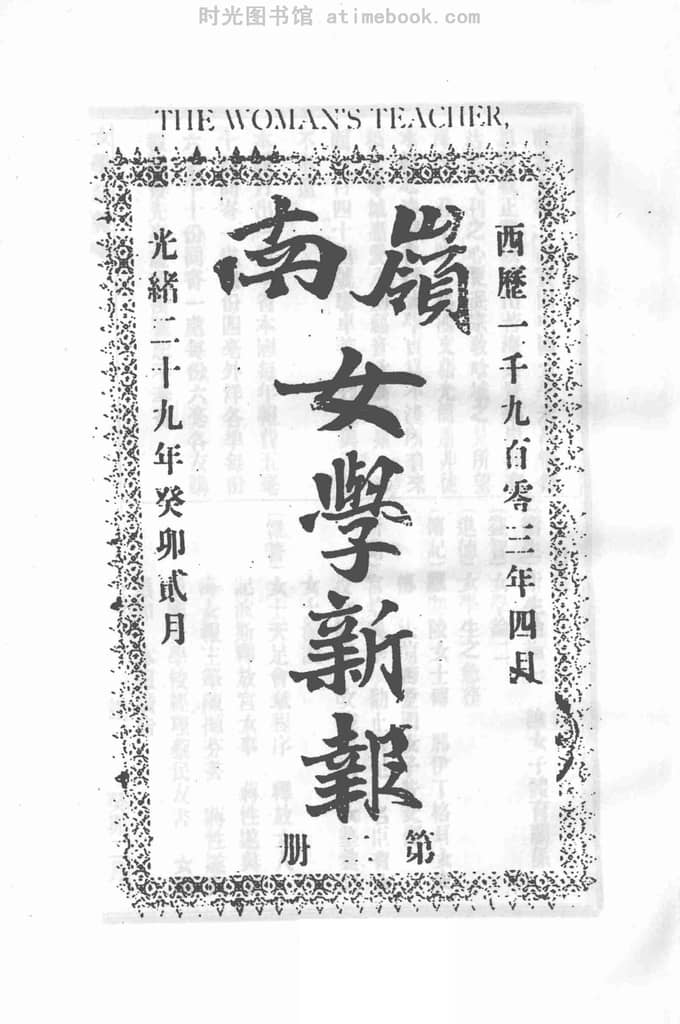 时光图书馆 atimebook.com
THE WOMAN'S TEACHER,
西歷一千九百零三年四月
嶺南
女學新報
第二册
光緒二十九年癸卯貳月